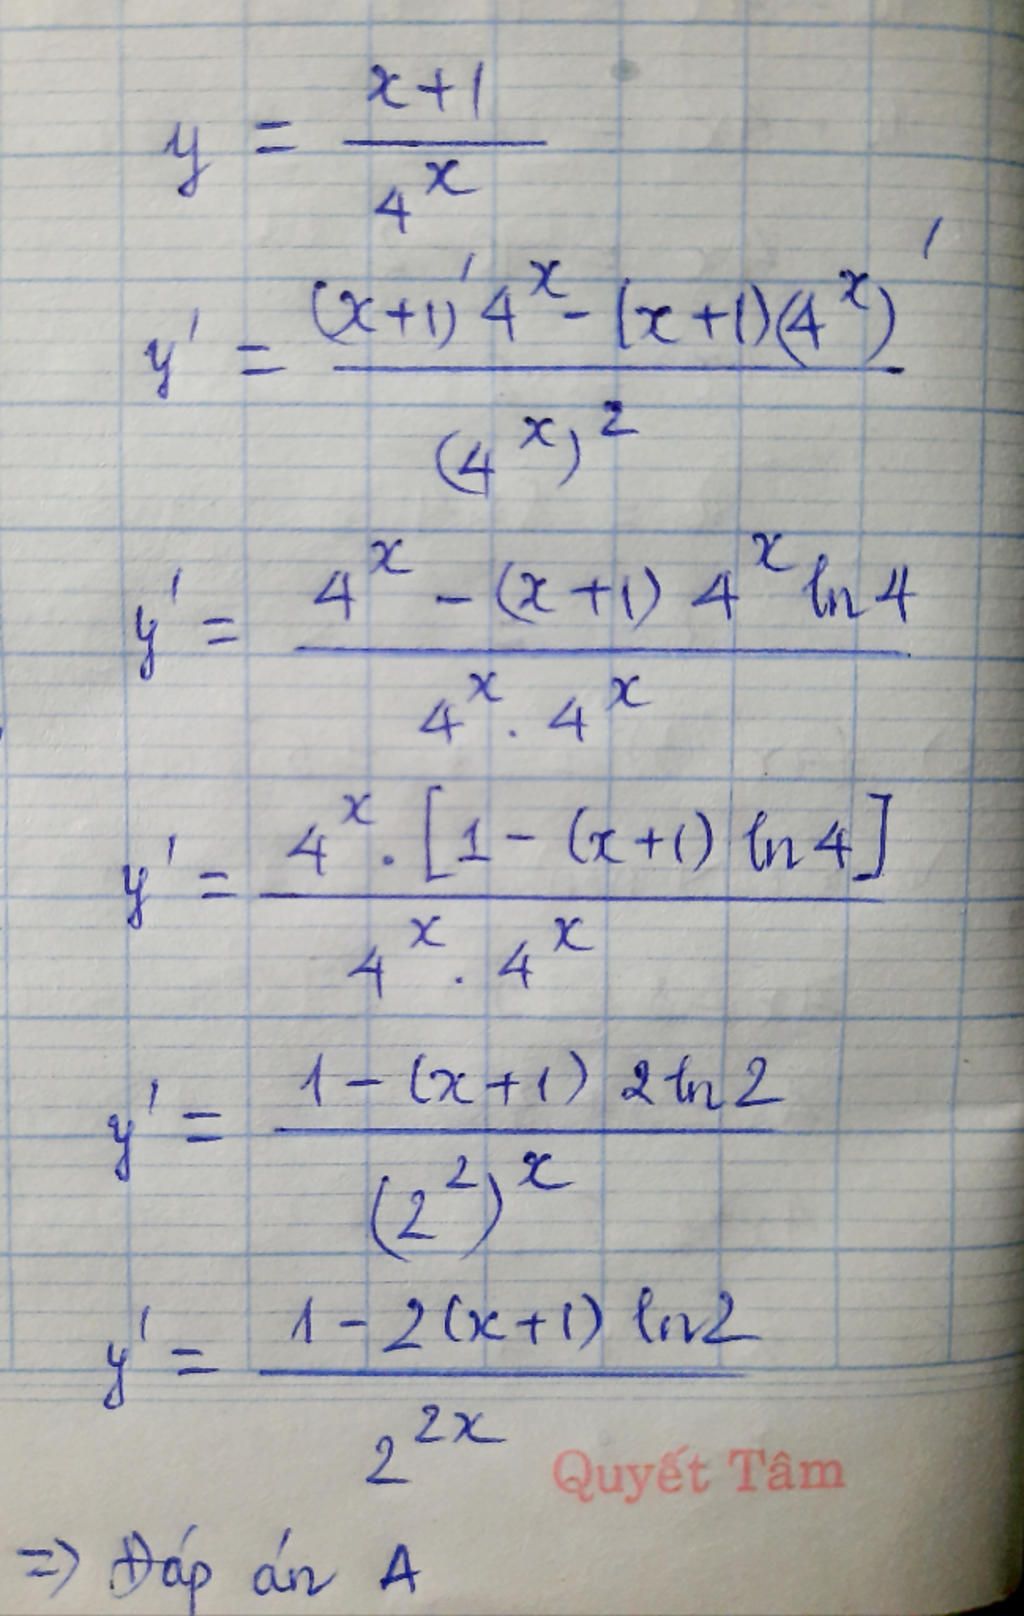 y = \frac{x+1}{4^x}
y' = \frac{(x+1)' 4^x - (x+1)(4^x)'}{(4^x)^2}
y' = \frac{4^x - (x+1) 4^x \ln 4}{4^x . 4^x}
y' = \frac{4^x . [1 - (x+1) \ln 4]}{4^x . 4^x}
y' = \frac{1 - (x+1) 2 \ln 2}{(2^2)^x}
y' = \frac{1 - 2(x+1) \ln 2}{2^{2x}}
Quyết Tâm
=> Đáp án A